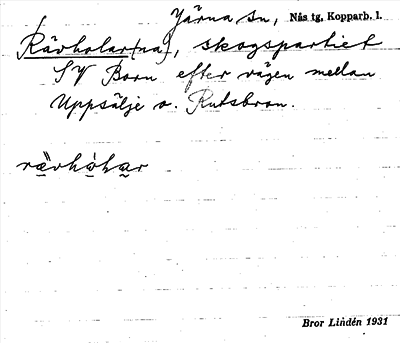 Järna sn, Nås tg, Kopparb. l.
Rävholar[na], skogspartiet
SV Born efter vägen mellan
Uppsälje o. Rutsbron.
rävhólar
Bror Lindén 1931